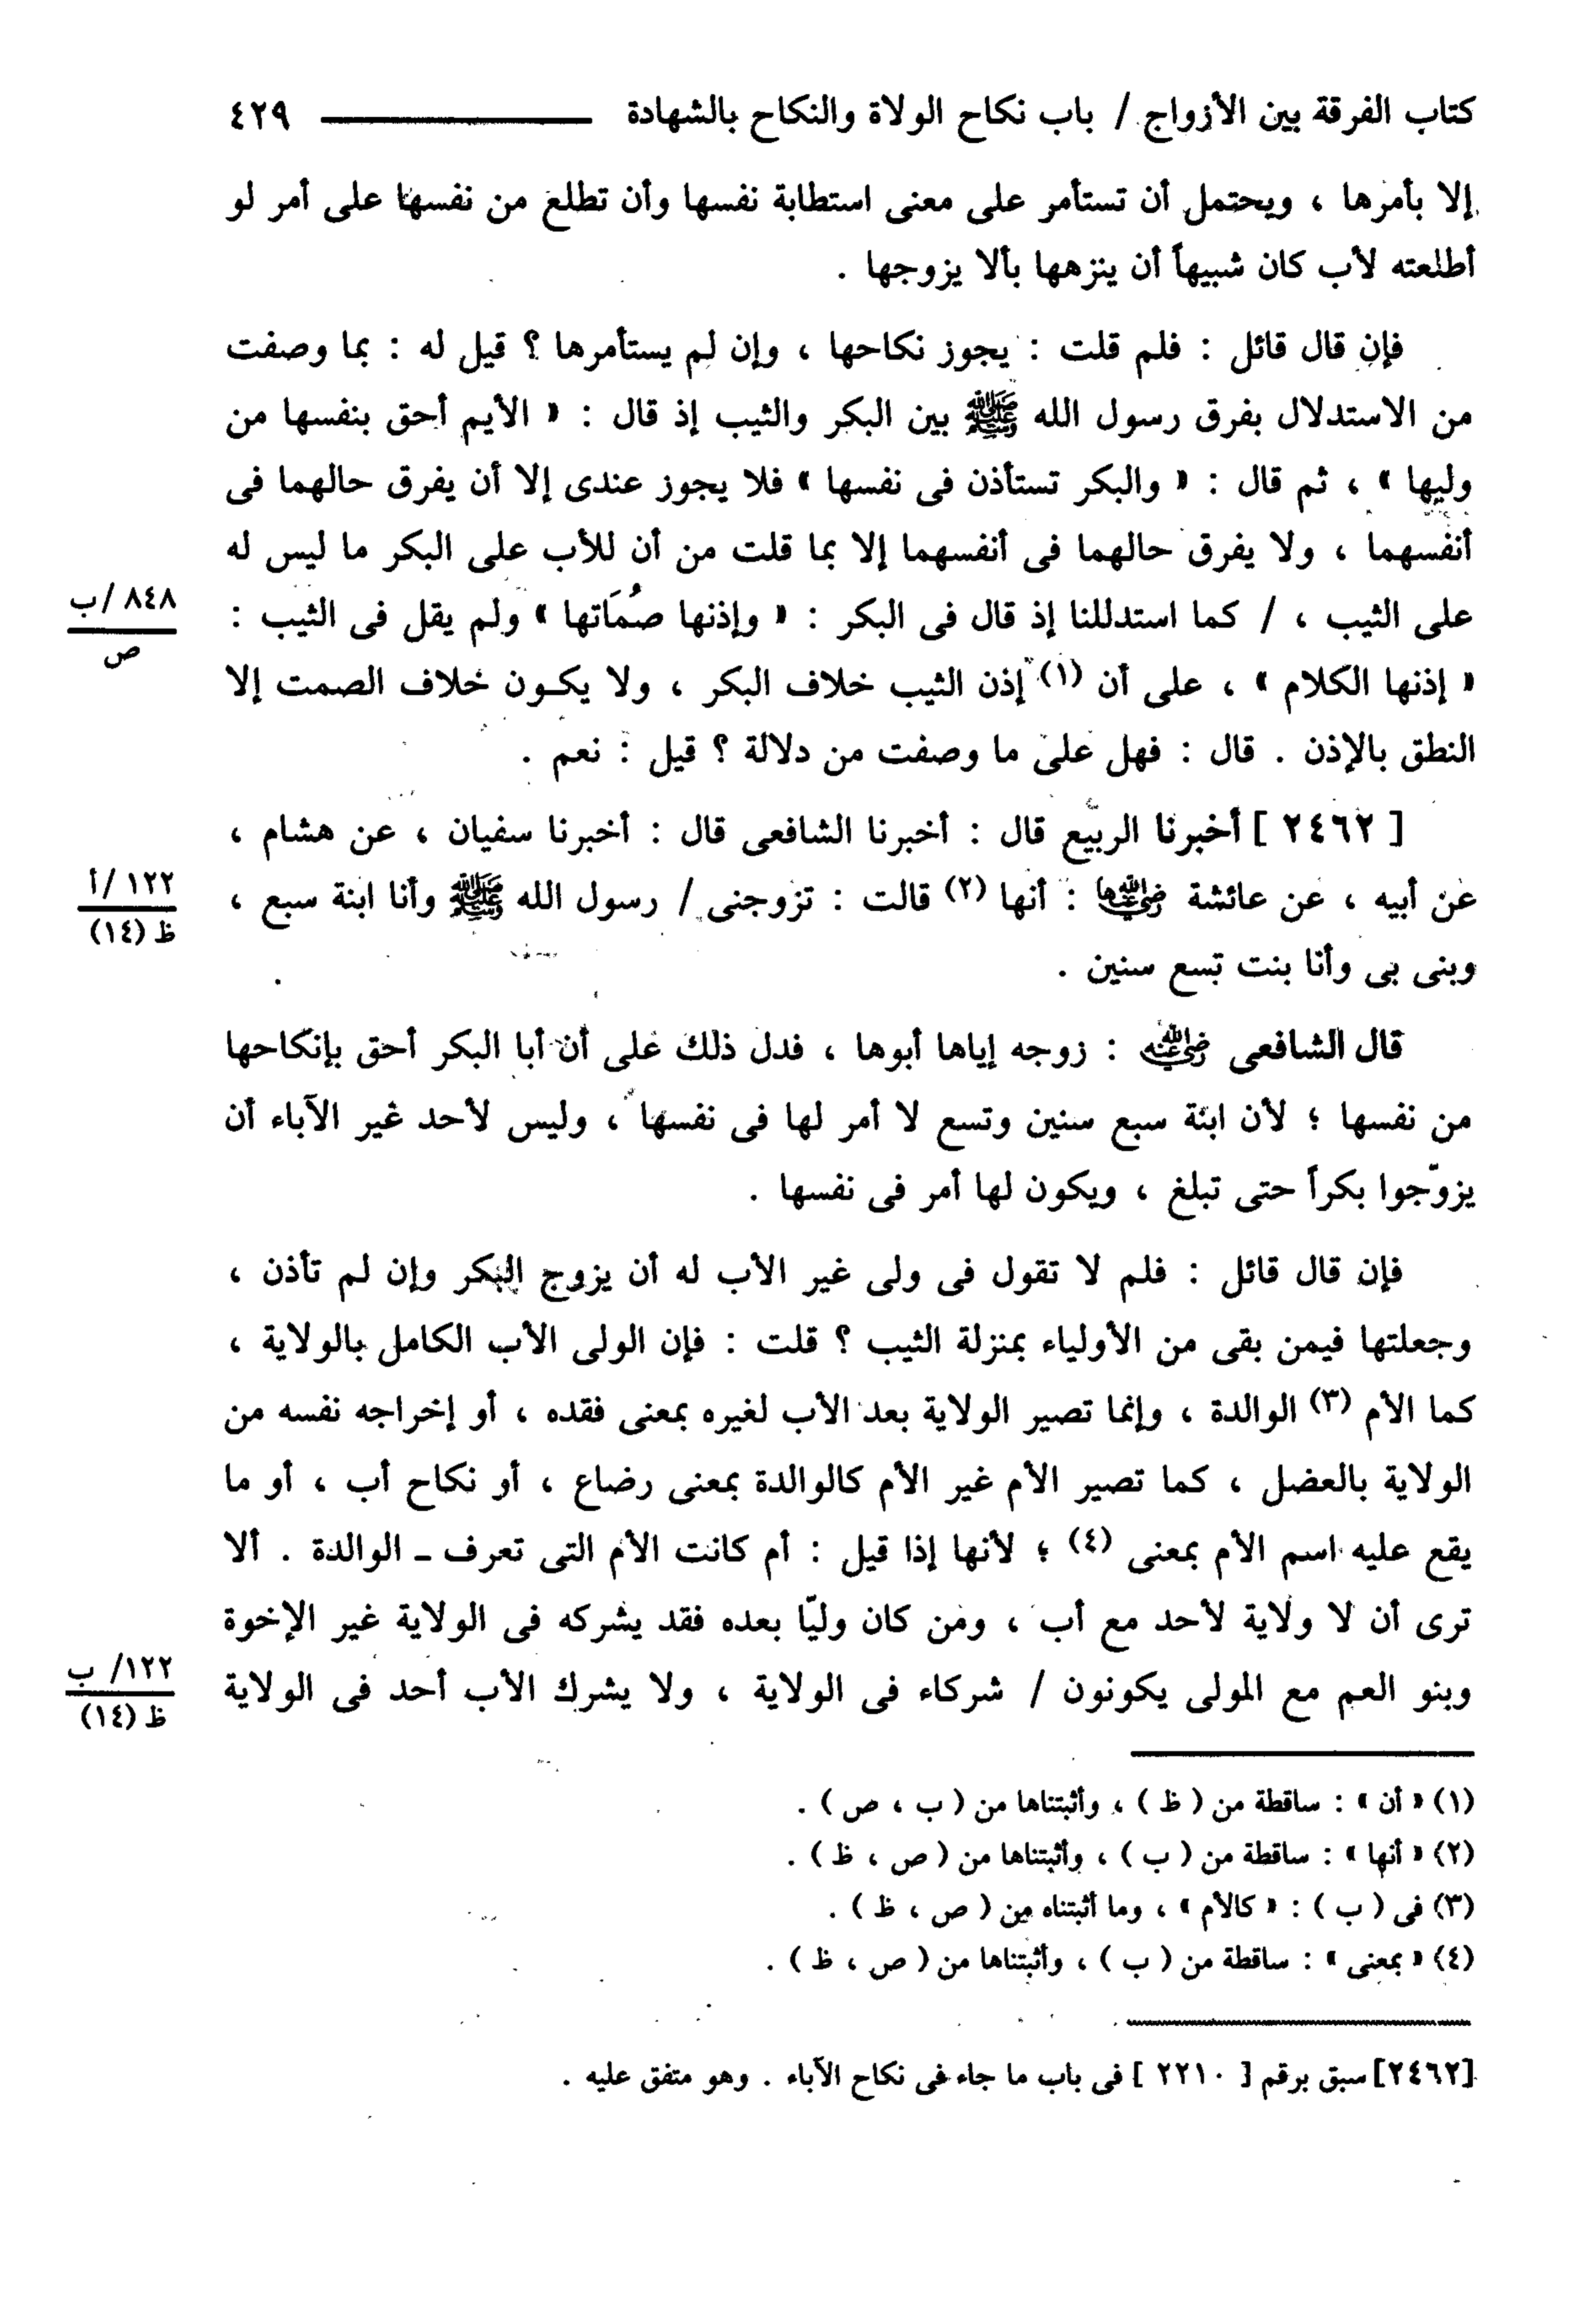 كتاب الفرقة بين الأزواج / باب نكاح الولاة والنكاح بالشهادة ــــــــــــــــ ٤٢٩
إلا بأمرها ، ويحتمل أن تستأمر على معنى استطابة نفسها وأن تطلع من نفسها على أمر لو
أطلعته لأب كان شبيهاً أن ينزهها بألا يزوجها .
فإن قال قائل : فلم قلت : يجوز نكاحها ، وإن لم يستأمرها ؟ قيل له : بما وصفت
من الاستدلال بفرق رسول الله ﷺ بين البكر والثيب إذ قال : « الأيم أحق بنفسها من
وليها » ، ثم قال : « والبكر تستأذن فى نفسها » فلا يجوز عندى إلا أن يفرق حالهما فى
أنفسهما ، ولا يفرق حالهما فى أنفسهما إلا بما قلت من أن للأب على البكر ما ليس له
على الثيب ، / كما استدللنا إذ قال فى البكر : « وإذنها صُمَاتها » ولم يقل فى الثيب :
٨٤٨/ب
ص
« إذنها الكلام » ، على أن (١) إذن الثيب خلاف البكر ، ولا يكـون خلاف الصمت إلا
النطق بالإذن . قال : فهل على ما وصفت من دلالة ؟ قيل : نعم .
[ ٢٤٦٢ ] أخبرنا الربيع قال : أخبرنا الشافعى قال : أخبرنا سفيان ، عن هشام ،
عن أبيه ، عن عائشة رضي الله عنها : أنها (٢) قالت : تزوجنى / رسول الله ﷺ وأنا ابنة سبع ،
١٢٢/أ
ظ (١٤)
وبنى بى وأنا بنت تسع سنين .
قال الشافعى رضي الله عنه : زوجه إياها أبوها ، فدل ذلك على أن أبا البكر أحق بإنكاحها
من نفسها ؛ لأن ابنة سبع سنين وتسع لا أمر لها فى نفسها ، وليس لأحد غير الآباء أن
يزوّجوا بكراً حتى تبلغ ، ويكون لها أمر فى نفسها .
فإن قال قائل : فلم لا تقول فى ولى غير الأب له أن يزوج البكر وإن لم تأذن ،
وجعلتها فيمن بقى من الأولياء بمنزلة الثيب ؟ قلت : فإن الولى الأب الكامل بالولاية ،
كما الأم (٣) الوالدة ، وإنما تصير الولاية بعد الأب لغيره بمعنى فقده ، أو إخراجه نفسه من
الولاية بالعضل ، كما تصير الأم غير الأم كالوالدة بمعنى رضاع ، أو نكاح أب ، أو ما
يقع عليه اسم الأم بمعنى (٤) ؛ لأنها إذا قيل : أم كانت الأم التى تعرف ـ الوالدة . ألا
ترى أن لا ولاية لأحد مع أب ، ومن كان وليّا بعده فقد يشركه فى الولاية غير الإخوة
وبنو العم مع المولى يكونون / شركاء فى الولاية ، ولا يشرك الأب أحد فى الولاية
١٢٢/ ب
ظ (١٤)
(١) « أن » : ساقطة من ( ظ ) ، وأثبتناها من ( ب ، ص ) .
(٢) « أنها » : ساقطة من ( ب ) ، وأثبتناها من ( ص ، ظ ) .
(٣) فى ( ب ) : « كالأم » ، وما أثبتناه من ( ص ، ظ ) .
(٤) « بمعنى » : ساقطة من ( ب ) ، وأثبتناها من ( ص ، ظ ) .
[٢٤٦٢] سبق برقم [ ٢٢١٠ ] فى باب ما جاء فى نكاح الآباء . وهو متفق عليه .